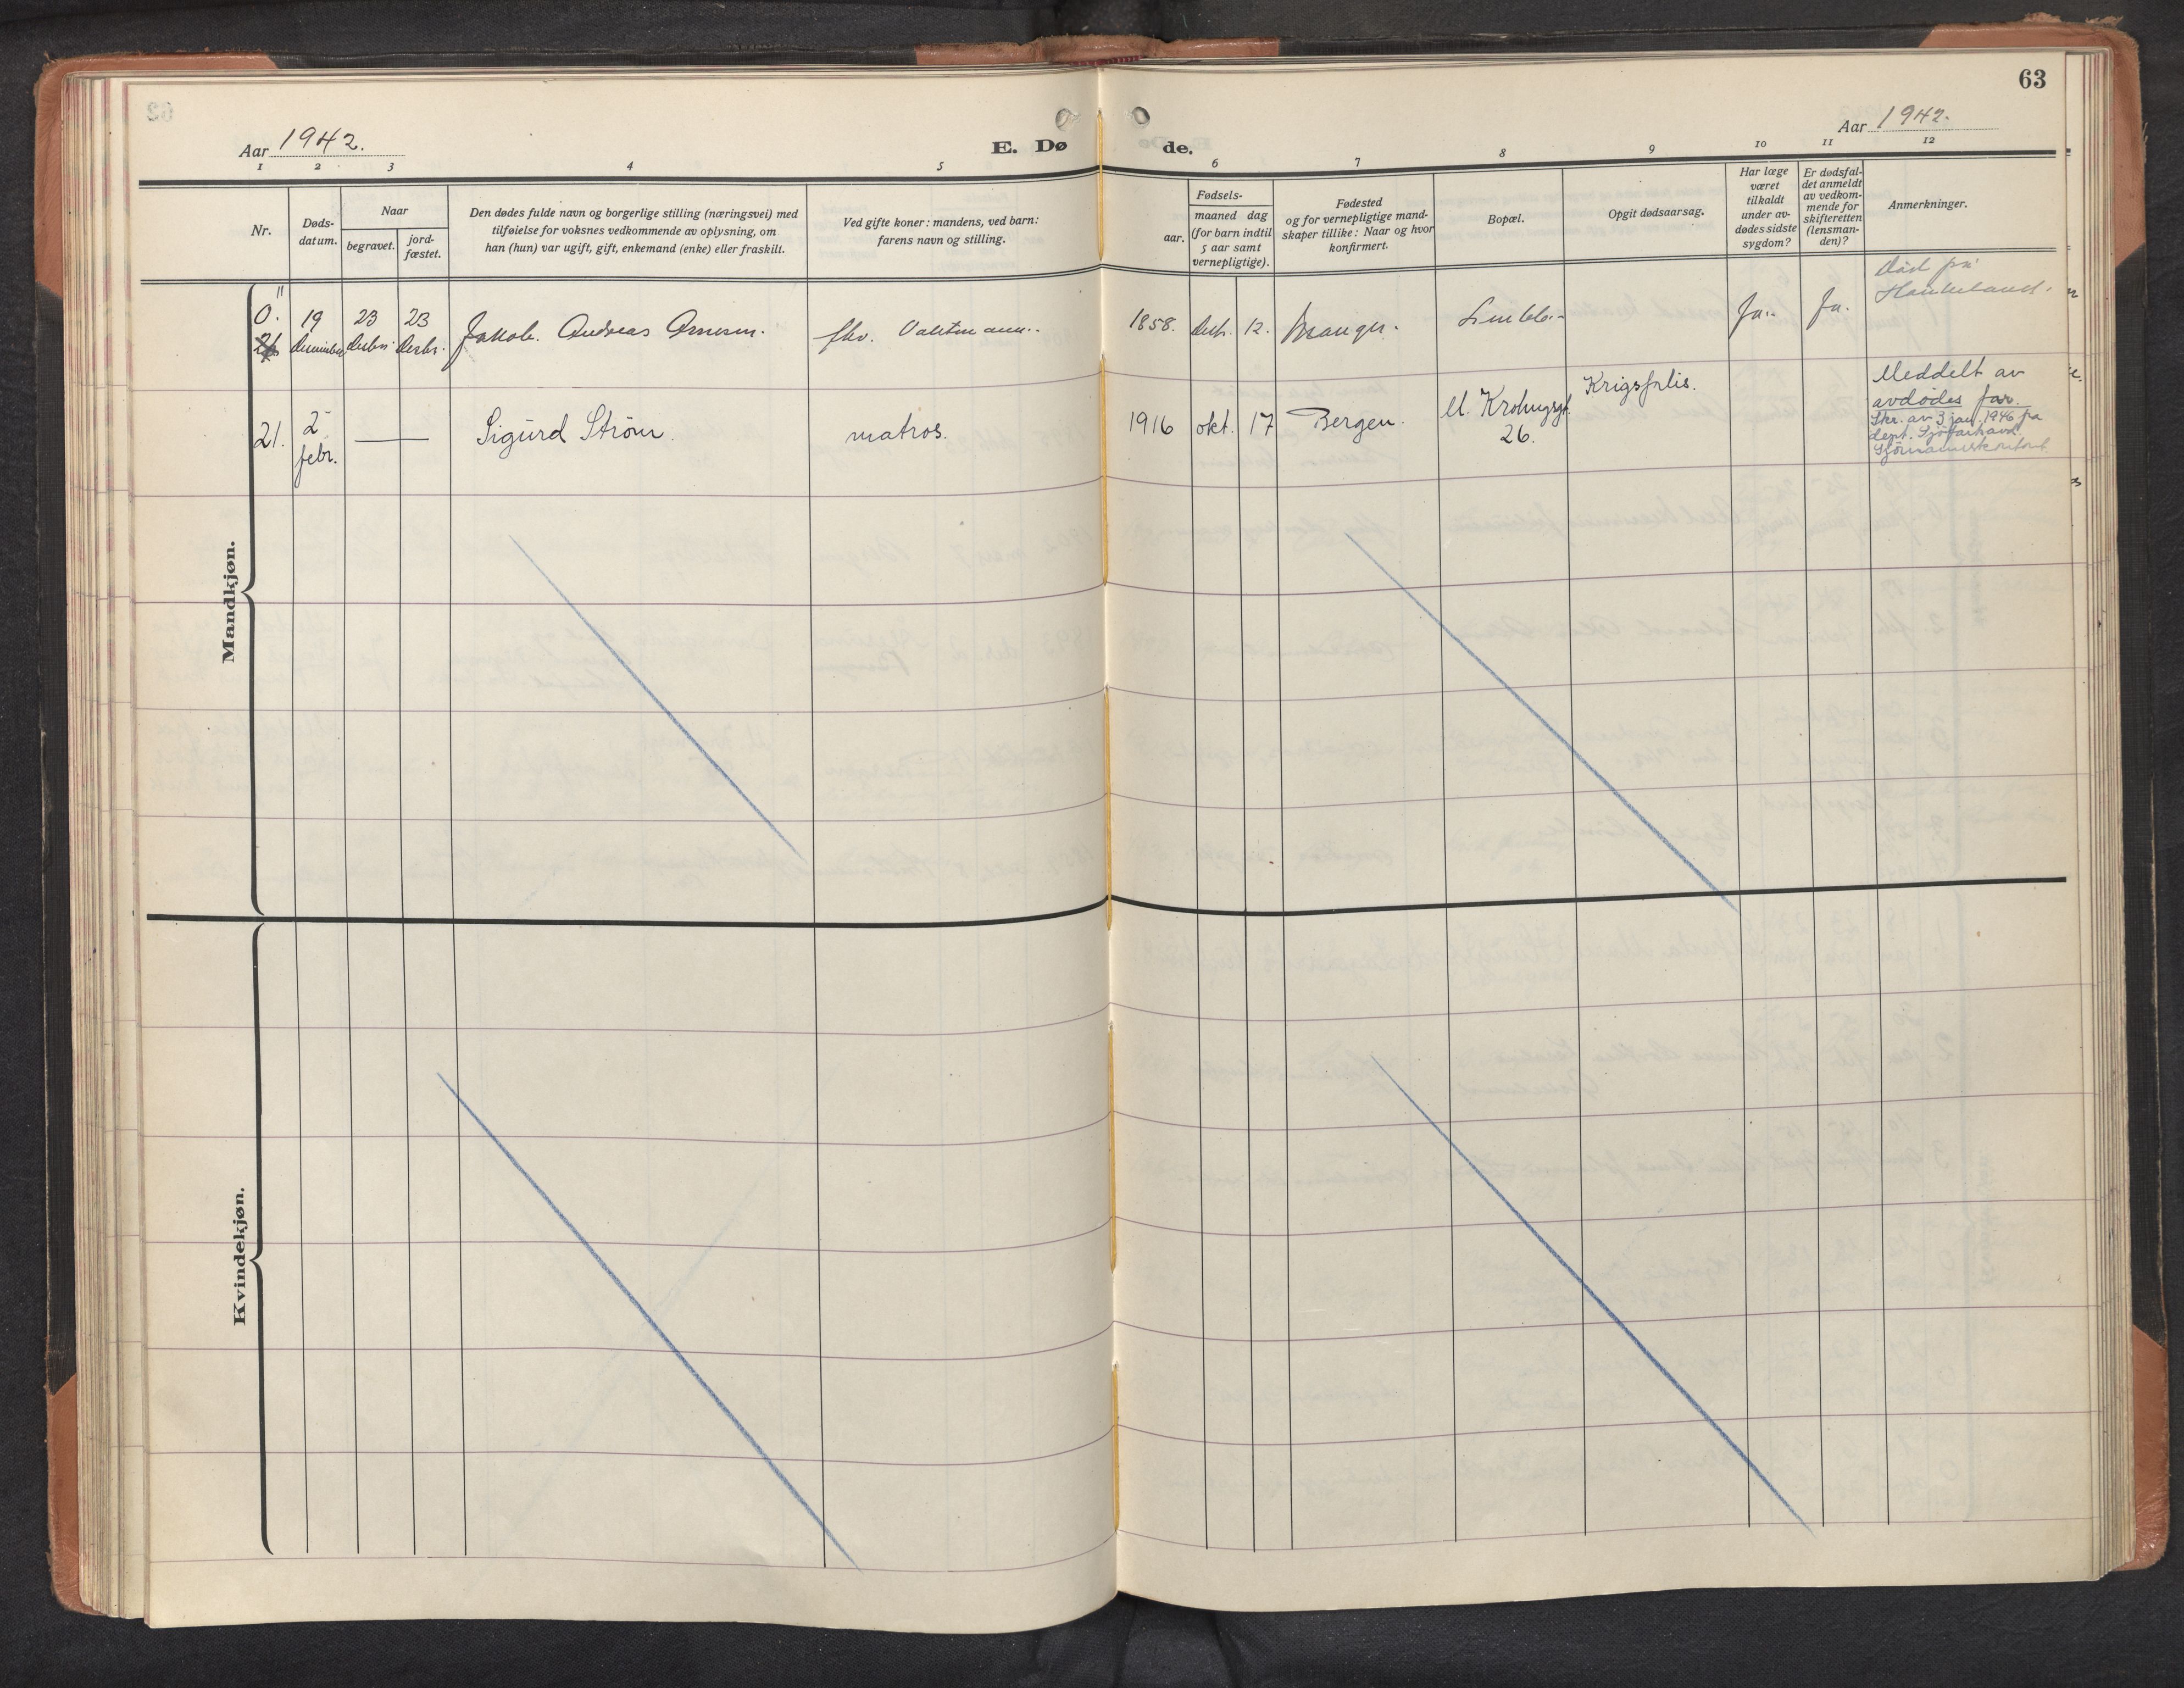 63
Aar 1942.
E. Døde.
Aar 1942.
1 2 3 4 5 6 7 8 9 10 11 12
Nr.
Døds-
datum.
Naar
begravet.
jord-
fæstet.
Den dødes fulde navn og borgerlige stilling (næringsvei) med
tilføielse for voksnes vedkommende av oplysning, om
han (hun) var ugift, gift, enkemand (enke) eller fraskilt.
Ved gifte koner: mandens, ved barn:
farens navn og stilling.
Fødsels-
aar.
maaned dag
(for barn indtil
5 aar samt
vernepligtige).
Fødested
og for vernepligtige mand-
skaper tillike: Naar og hvor
konfirmert.
Bopæl.
Opgit dødsaarsag.
Har læge
været
tilkaldt
under av-
dødes sidste
sygdom?
Er dødsfal-
det anmeldt
av vedkom-
mende for
skifteretten
(lensman-
den)?
Anmerkninger.
Mandkjøn.
0.
19
desember
23
desbr.
23
desbr.
Jakob Andreas Arnesen.
fhv.
1858.
12.
Manger.
Ja.
Ja.
Død på
Haukeland.
21.
2
febr.
Sigurd Strøm.
matros.
1916
okt.
17
Bergen.
M. Krohnsgt.
26.
Krigsforlis.
Meddelt av
avdødes far.
Skr. av 3 jan. 1946 fra
dept. Sjøfartsavd.
Sjømannskontoret
Kvindekjøn.